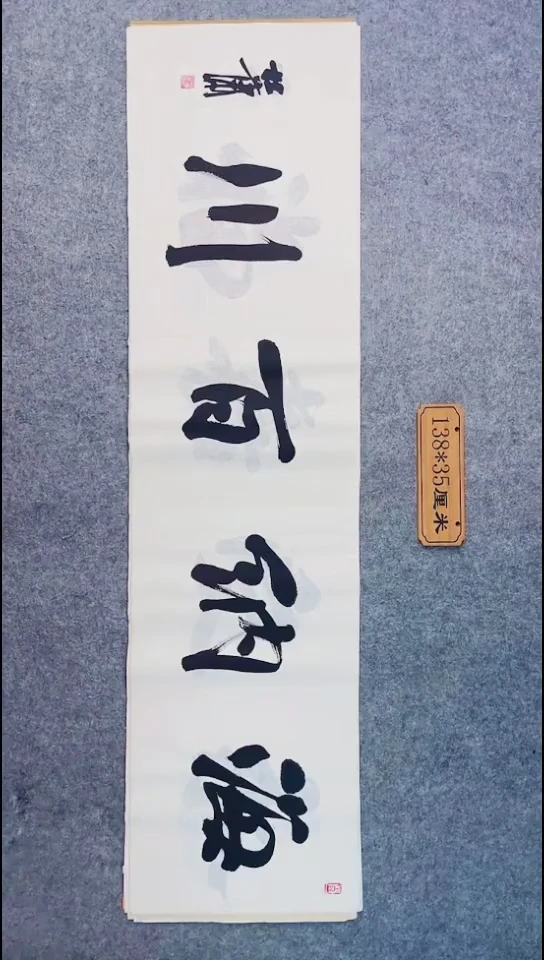 海纳百川
138*35厘米